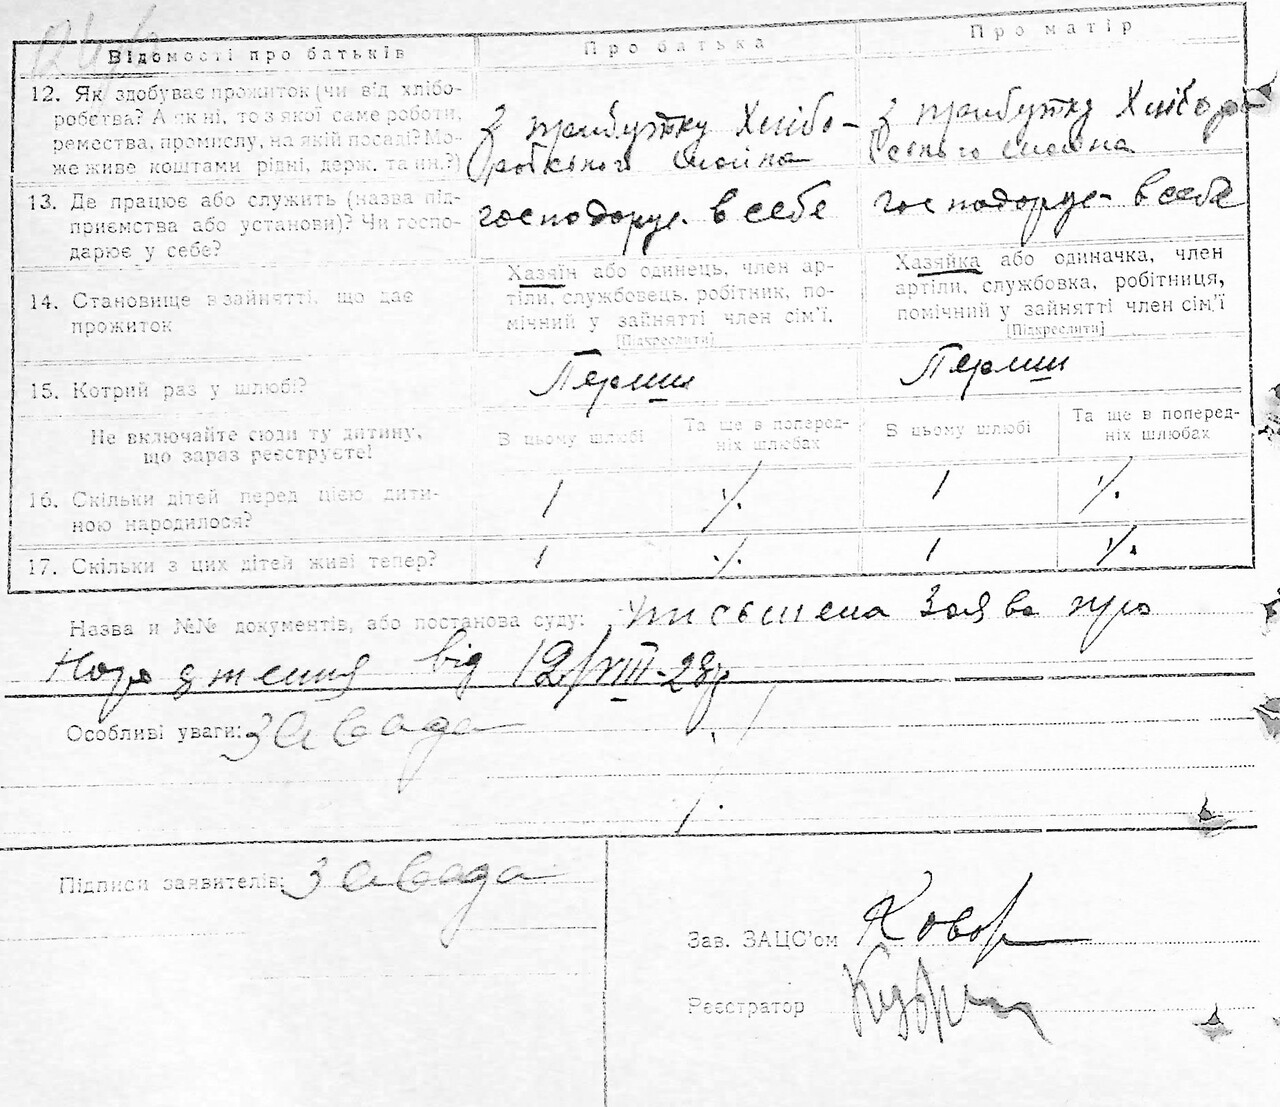 Відомості про батьків
Про батька
Про матір
12. Як здобуває прожиток (чи від хлібо-
робства? А як ні, то з якої саме роботи,
ремества, промислу, на якій посаді? Мо-
же живе коштами рідні, держ. та ин.?)
З прибутку Хлібо-
робського
З прибутку Хлібор
13. Де працює або служить (назва під-
приємства або установи)? Чи госпо-
дарює у себе?
господорує в себе
господорує в себе
14. Становище в зайнятті, що дає
прожиток
Хазяїн або одинець, член ар-
тіли, службовець, робітник, по-
мічний у зайнятті член сім'ї.
[Підкреслити]
Хазяйка або одиначка, член
артіли, службовка, робітниця,
помічний у зайнятті член сім'ї
[Підкреслити]
15. Котрий раз у шлюбі?
Перший
Перший
Не включайте сюди ту дитину,
що зараз реєструєте!
В цьому шлюбі
Та ще в поперед-
ніх шлюбах
В цьому шлюбі
Та ще в поперед-
ніх шлюбах
16. Скільки дітей перед цією дити-
ною народилося?
1
٪
1
٪
17. Скільки з цих дітей живі тепер?
1
٪
1
٪
Назва и №№ документів, або постанова суду: письмена Заява про
Народження від 12/VIII-28р
Особливі уваги: Завада
Підписи заявителів: Завада
Зав. ЗАЦС'ом
Реєстратор